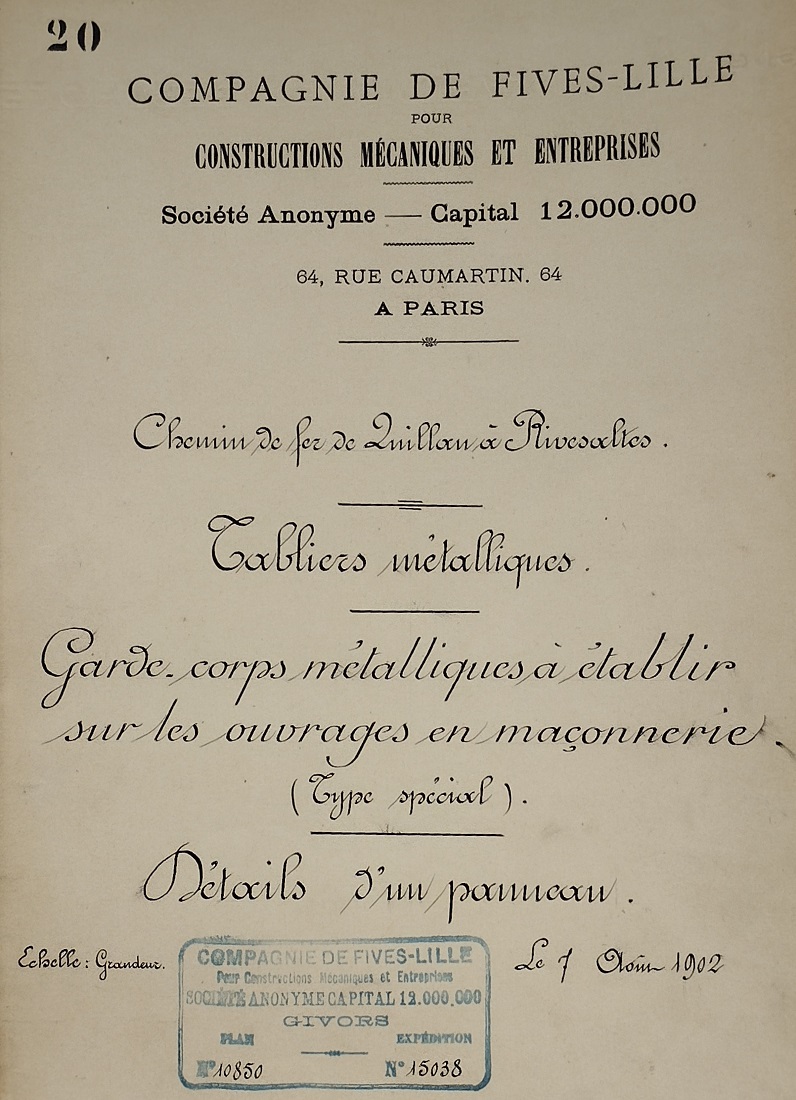 20
COMPAGNIE DE FIVES-LILLE
POUR
CONSTRUCTIONS MÉCANIQUES ET ENTREPRISES
Société Anonyme — Capital 12.000.000
64, RUE CAUMARTIN. 64
A PARIS
Chemin de fer de Quillan à Rivesaltes.
Tabliers métalliques.
Garde-corps métalliques à établir
sur les ouvrages en maçonnerie.
(Type spécial).
Détails d'un panneau.
Echelle: Grandeur.
Le 7 Août 1902
COMPAGNIE DE FIVES-LILLE
Pour Constructions Mécaniques et Entreprises
SOCIÉTÉ ANONYME CAPITAL 12.000.000
GIVORS
PLAN EXPÉDITION
N° 10850 N° 15038